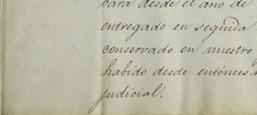 bara desde el ano de
entregado en seguida
conservado en nuestro
habido desde entónces
judicial.